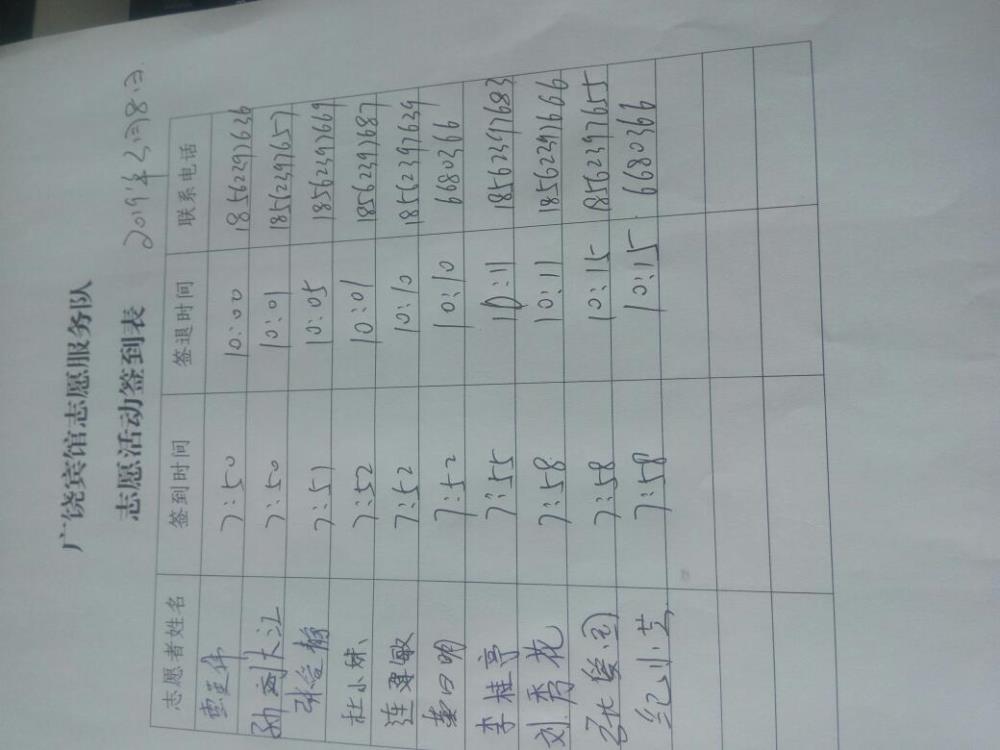 广饶宾馆志愿服务队
志愿活动签到表
2019年3月8日
志愿者姓名 签到时间 签退时间 联系电话
7:50 10:00 18562397636
大江 7:50 10:01 18562397657
张 静 7:51 10:05 18562397669
杜小妹 7:52 10:01 18562397687
连 敏 7:52 10:10 18562397639
明 7:52 10:10 6680366
李桂亭 7:55 10:11 18562397683
刘秀花 7:58 10:11 18562397666
7:58 10:15 18562397655
纪小芳 7:58 10:15 6680366